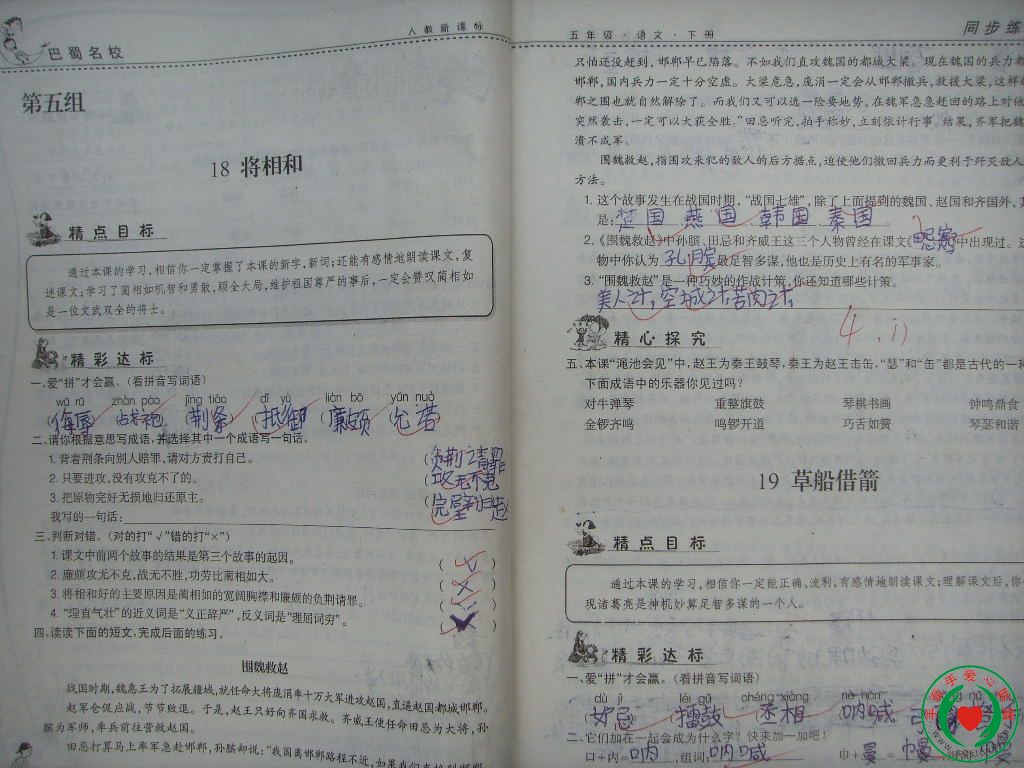 巴蜀名校
人教新课标
第五组
18 将相和
精点目标
通过本课的学习,相信你一定掌握了本课的新字,新词;还能有感情地朗读课文,复
述课文;学习了蔺相如机智和勇敢,顾全大局,维护祖国尊严的事后,一定会赞叹蔺相如
是一位文武双全的将士。
精彩达标
一、爱“拼”才会赢。(看拼音写词语)
wū rǔ zhàn páo jīng tiáo dǐ yù lián bō yǔn nuò
(侮辱 (战袍) (荆条) (抵御 (廉颇 (允诺)
二、请你根据意思写成语,并选择其中一个成语写一句话。
1. 背着荆条向别人赔罪,请对方责打自己。 (负荆请罪
2. 只要进攻,没有攻克不了的。 (攻无不克
3. 把原物完好无损地归还原主。 (完璧归赵
我写的一句话:
三、判断对错。(对的打“√”错的打“×”)
1. 课文中前两个故事的结果是第三个故事的起因。 (√)
2. 廉颇攻无不克,战无不胜,功劳比蔺相如大。 (×)
3. 将相和好的主要原因是蔺相如的宽阔胸襟和廉颇的负荆请罪。 (√)
4. “理直气壮”的近义词是“义正辞严”,反义词是“理屈词穷”。 ( )
四、读读下面的短文,完成后面的练习。
围魏救赵
战国时期,魏惠王为了拓展疆域,就任命大将庞涓率十万大军进攻赵国,直逼赵国都城邯郸。
赵军仓促应战,节节败退。于是,赵王只好向齐国求救。齐威王便任命田忌为大将,孙
膑为军师,率兵前往营救赵国。
田忌打算马上率军急赴邯郸,孙膑却说:“我国离邯郸路程不近,如果我们直接到邯郸
五年级·语文·下册
同步练
只怕还没赶到,邯郸早已陷落。不如我们直攻魏国的都城大梁。现在魏国的兵力都
邯郸,国内兵力一定十分空虚。大梁危急,庞涓一定会从邯郸撤兵,救援大梁,这样邯
郸之围也就自然解除了。而我们又可以选一险要地势,在魏军急急赶回的路上对他
突然袭击,一定可以大获全胜。”田忌听完,拍手称妙,立刻依计行事。结果,齐军把魏
溃不成军。
围魏救赵,指围攻来犯的敌人的后方据点,迫使他们撤回兵力而更利于歼灭敌人
方法。
1. 这个故事发生在战国时期,“战国七雄”,除了上面提到的魏国、赵国和齐国外,其
是:楚国 燕国、韩国、秦国。
2.《围魏救赵》中孙膑、田忌和齐威王这三个人物曾经在课文《 》中出现过。这
物中你认为 孔膑 最足智多谋,他也是历史上有名的军事家。
3. “围魏救赵”是一种巧妙的作战计策,你还知道哪些计策。
美人计,空城计,苦肉计。
4.11
精心探究
五、本课“渑池会见”中,赵王为秦王鼓琴,秦王为赵王击缶,“瑟”和“缶”都是古代的一种
下面成语中的乐器你见过吗?
对牛弹琴 重整旗鼓 琴棋书画 钟鸣鼎食
金锣齐鸣 鸣锣开道 巧舌如簧 琴瑟和谐
19 草船借箭
精点目标
通过本课的学习,相信你一定能正确、流利,有感情地朗读课文;理解课文后,你会
现诸葛亮是神机妙算足智多谋的一个人。
精彩达标
一、爱“拼”才会赢。(看拼音写词语)
dù jì léi gǔ chéng xiàng nà hǎn
(妒忌) (擂鼓 丞相 呐喊
二、它们加在一起会成为什么字?快来加一加吧!
口+内=呐 ,组词:呐喊 巾+曼=幔